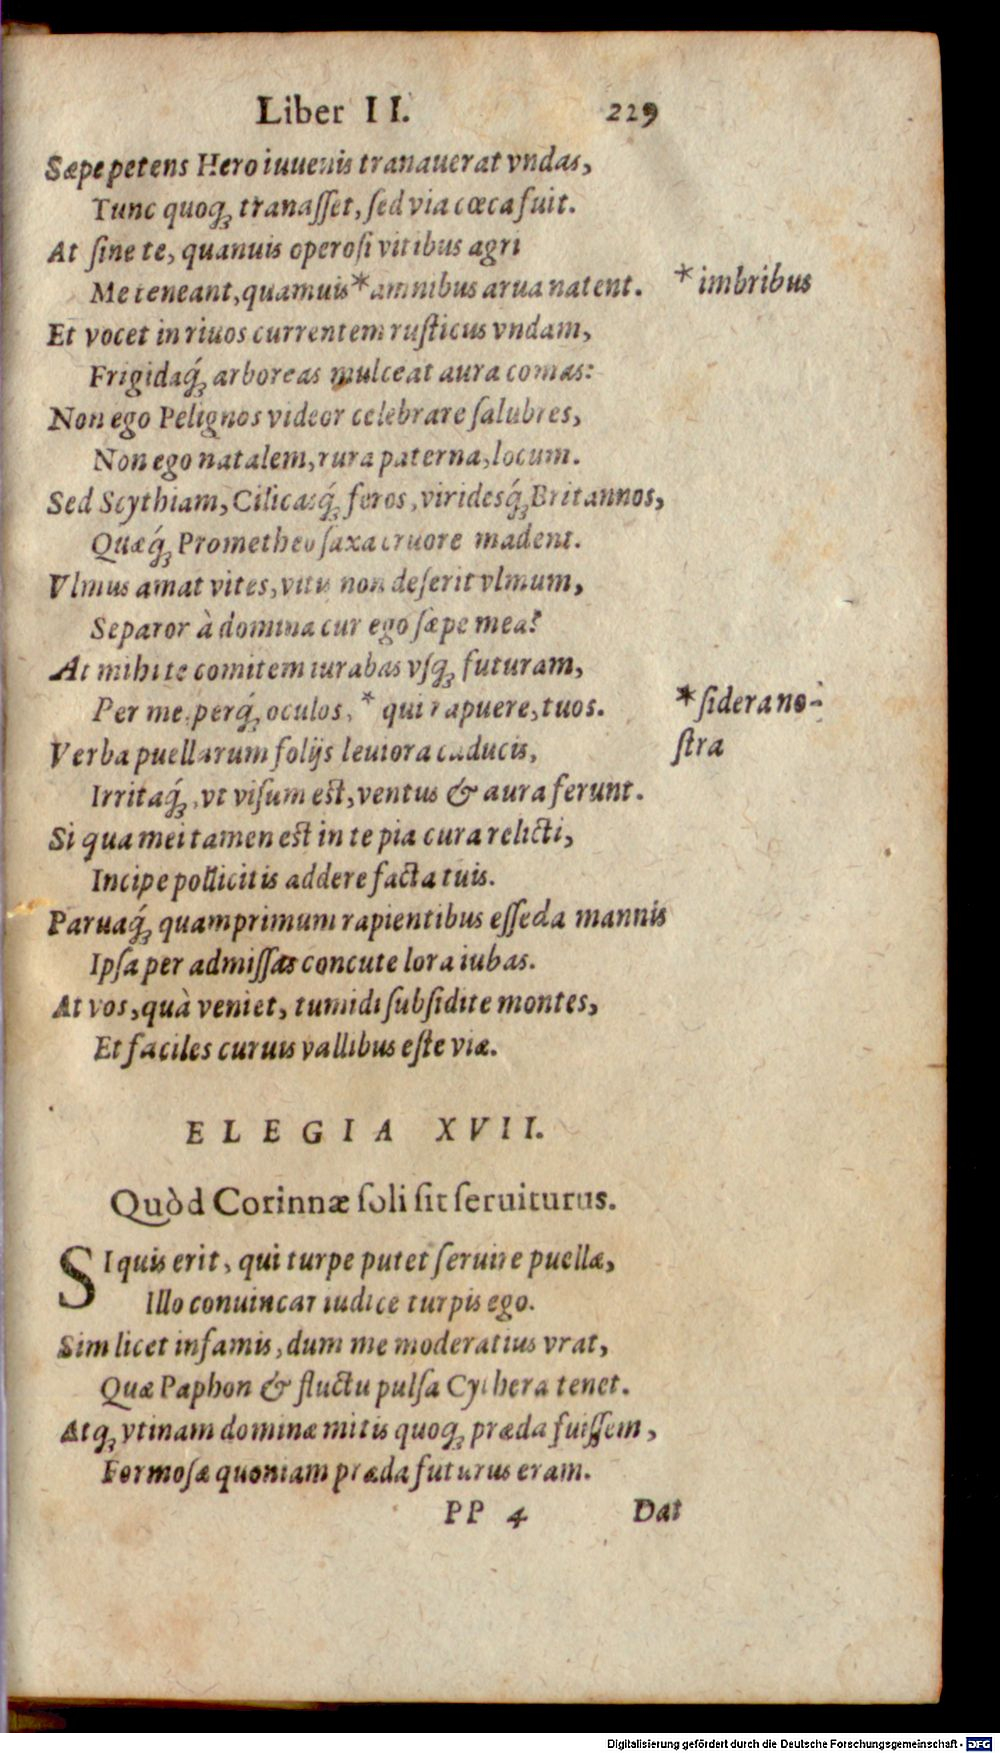 Liber II. 229
Sæpe petens Hero iuuenis tranauerat vndas,
Tunc quoq; tranasſet, ſed via cœca fuit.
At ſine te, quanuis operoſi vitibus agri
Me teneant, quamuis * amnibus arua natent. * imbribus
Et vocet in riuos currentem ruſticus vndam,
Frigidaq́; arboreas mulceat aura comas:
Non ego Pelignos videor celebrare ſalubres,
Non ego natalem, rura paterna, locum.
Sed Scythiam, Cilicasq́; feros, viridesq́; Britannos,
Quæq́; Prometheo ſaxa cruore madent.
Vlmus amat vites, vitis non deſerit vlmum,
Separor à domina cur ego ſæpe mea?
At mihi te comitem iurabas vſq; futuram,
Per me, perq́; oculos, * qui rapuere, tuos. * ſidera no-
ſtra
Verba puellarum folijs leuiora caducis,
Irritaq́;, vt viſum est, ventus & aura ferunt.
Si qua mei tamen est in te pia cura relicti,
Incipe pollicitis addere facta tuis.
Paruaq́; quamprimum rapientibus eſſeda mannis
Ipſa per admiſſas concute lora iubas.
At vos, quà veniet, tumidi ſubſidite montes,
Et faciles curuis vallibus eſte viæ.
ELEGIA XVII.
Quòd Corinnæ ſoli ſit ſeruiturus.
SI quis erit, qui turpe putet ſeruire puellæ,
Illo conuincar iudice turpis ego.
Sim licet infamis, dum me moderatius vrat,
Quæ Paphon & fluctu pulſa Cythera tenet.
Atq; vtinam dominæ mitis quoq; præda fuiſſem,
Formoſæ quoniam præda futurus eram.
PP 4 Dat
Digitalisierung gefördert durch die Deutsche Forschungsgemeinschaft - DFG